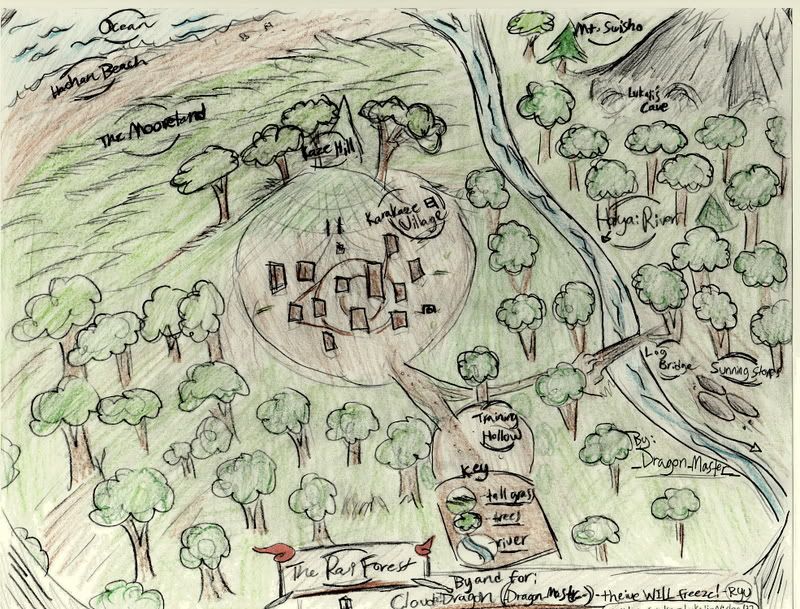 Ocean
Hachan Beach
The Mooreland
Kaze Hill
Karakaze
Village
Mt. Swisho
Lukaji's
Cave
Halyai River
Log
Bridge
Sunning Stones
Training
Hollow
Key
tall grass
trees
river
By:
_Dragon_Master_
The Rai Forest
By and for:
Cloud Dragon (Dragon_Master_) - theive WILL freeze! - Ryu